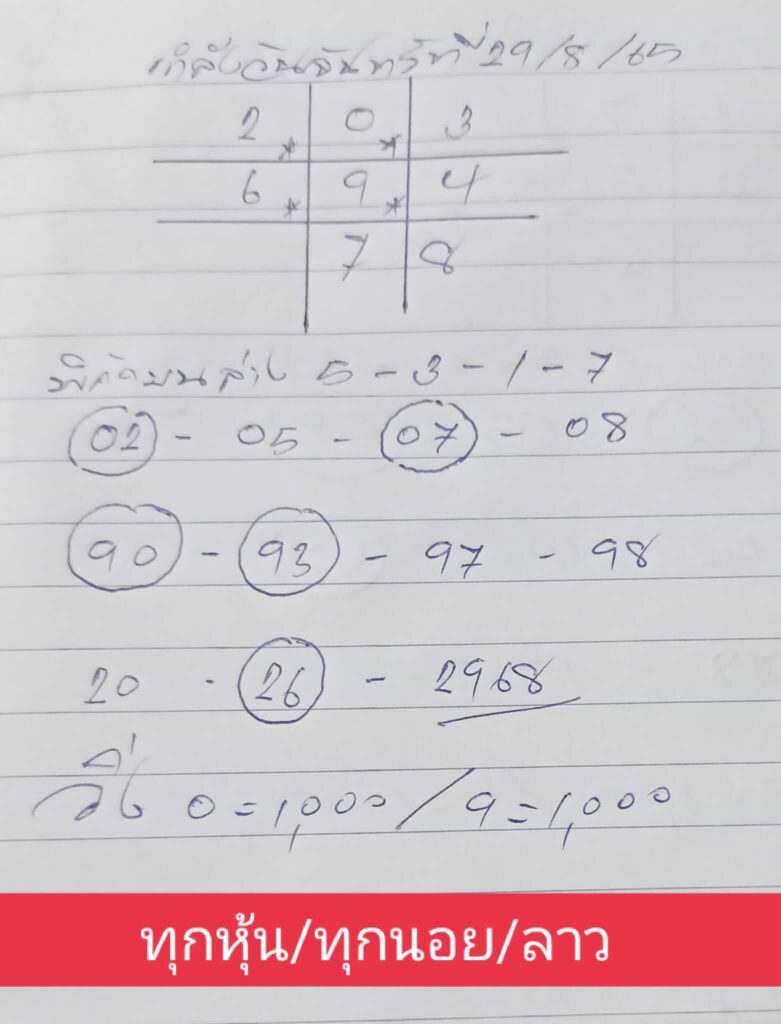 กำลังวันจันทร์ที่ 29/8/65
2 * 0 * 3
6 * 9 * 4
7 8
พิกัดบนล่าง 5 - 3 - 1 - 7
02 - 05 - 07 - 08
90 - 93 - 97 - 98
20 - 26 - 2968
วิ่ง 0 = 1,000 / 9 = 1,000
ทุกหุ้น/ทุกนอย/ลาว